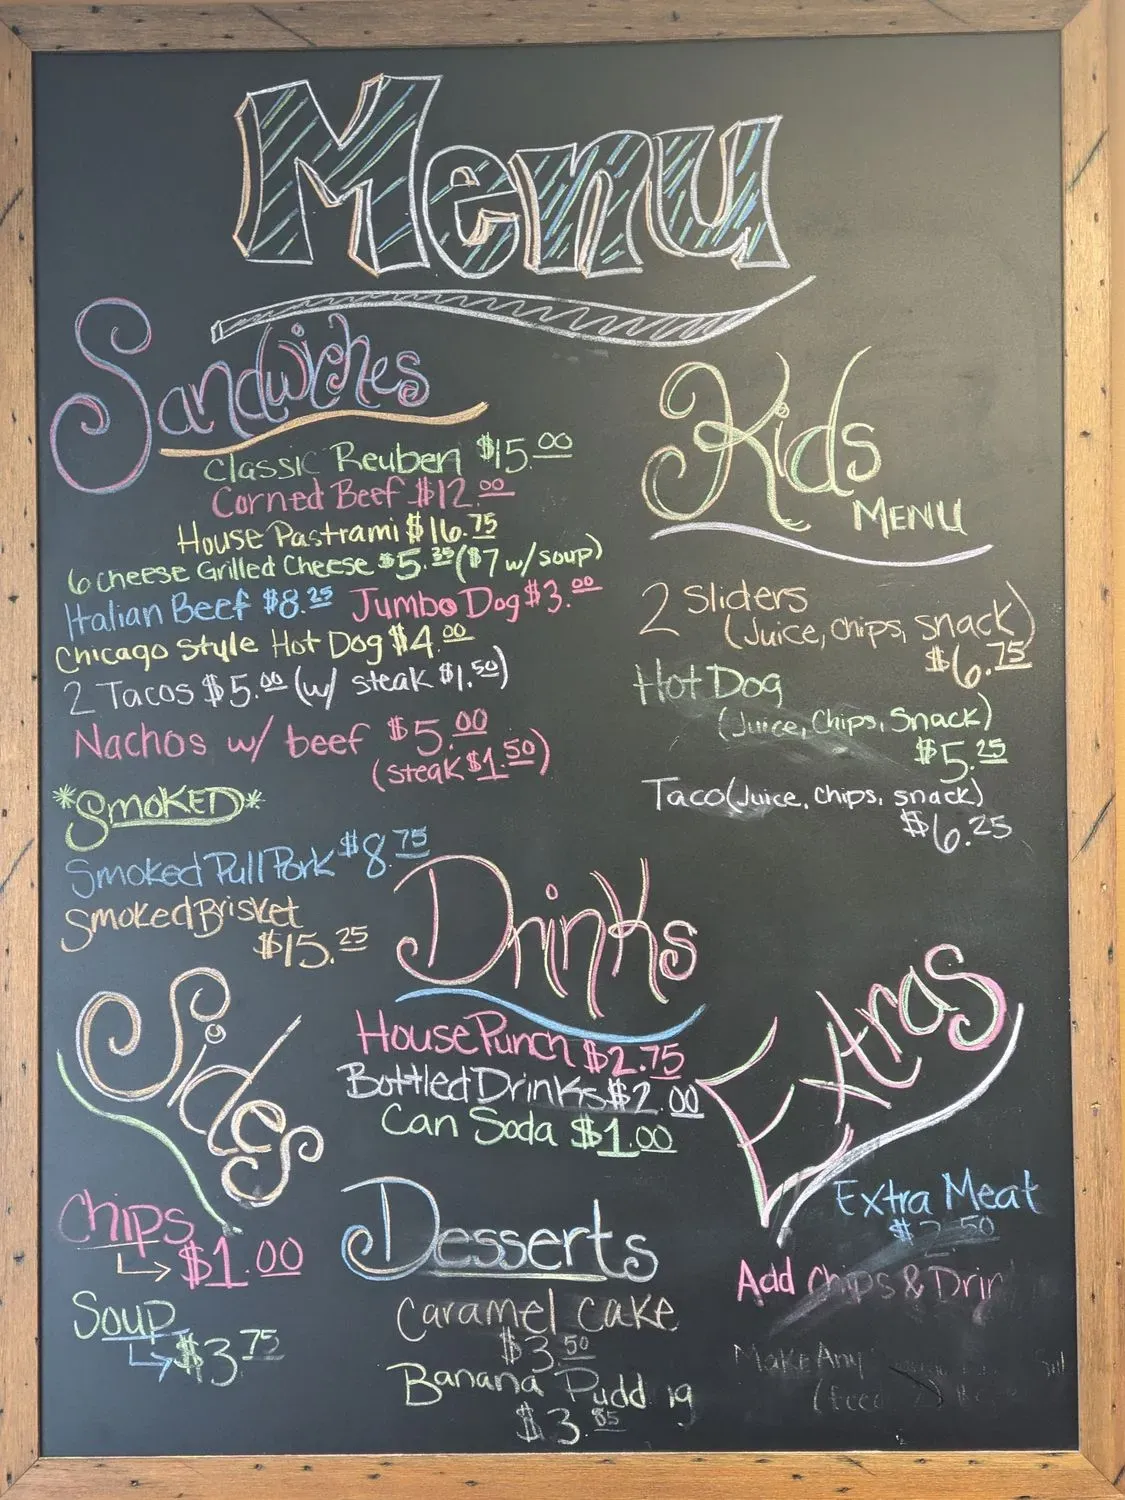 Menu
Sandwiches
Classic Reuben $15.00
Corned Beef $12.00
House Pastrami $16.75
6 cheese Grilled Cheese $5.35 ($7 w/ soup)
Italian Beef $8.25 Jumbo Dog $3.00
Chicago Style Hot Dog $4.00
2 Tacos $5.00 (w/ steak $1.50)
Nachos w/ beef $5.00
(steak $1.50)
*Smoked*
Smoked Pull Pork $8.75
Smoked Brisket
$15.25
Kids
Menu
2 Sliders
(Juice, chips, snack)
$6.75
Hot Dog
(Juice, Chips, Snack)
$5.25
Taco (Juice, chips, snack)
$6.25
Drinks
House Punch $2.75
Bottled Drinks $2.00
Can Soda $1.00
Sides
Chips
$1.00
Soup
$3.75
Desserts
Caramel Cake
$3.50
Banana Pudd g
$3.85
Extras
Extra Meat
$2.50
Add Chips & Drin
Make Any